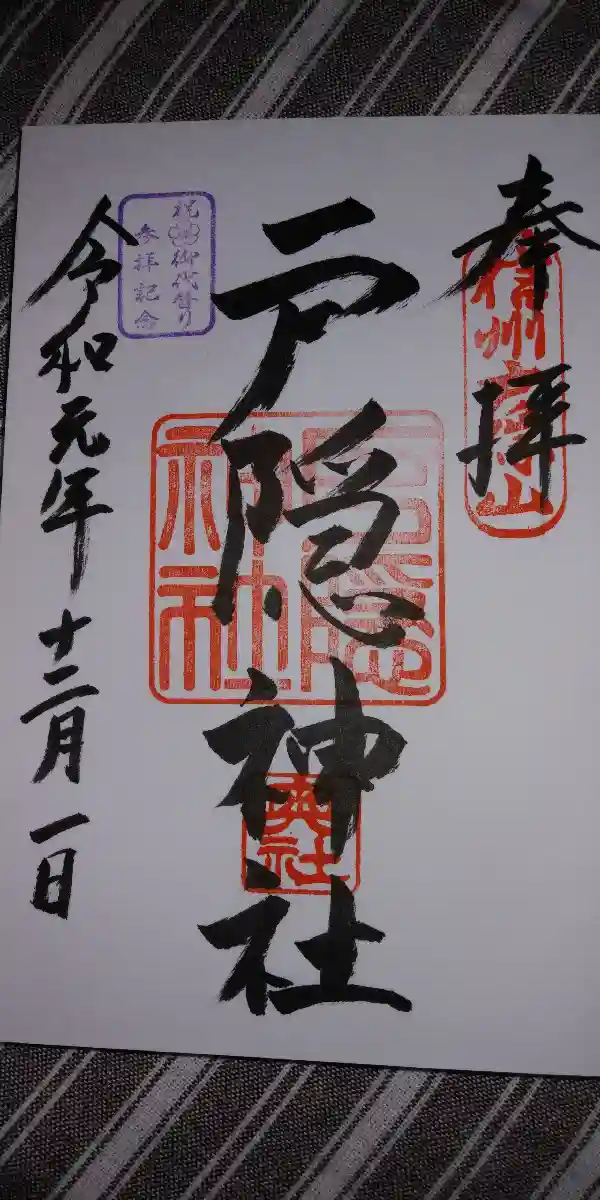 奉拝
信州戸隠山
戸隠神社
戸隠
神社
奥社
祝 御代替り
参拝記念
令和元年十二月一日